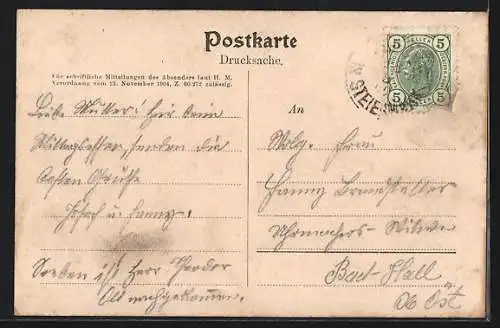 Postkarte
Drucksache.
Für schriftliche Mitteilungen des Absenders laut H. M.
Verordnung vom 13. November 1904, Z. 60.277 zulässig.
5 HELLER 5
5 5
STEIERMARK
Liebe Mutter! Hier beim
senden die
besten Grüße
Josef u. Fanny.
Soeben ist Herr Theodor
nachgekommen.
An
Wolg. Frau
Fanny Brandstetter
Uhrmachers-Witwe
Bad-Hall
Ob. Öst.